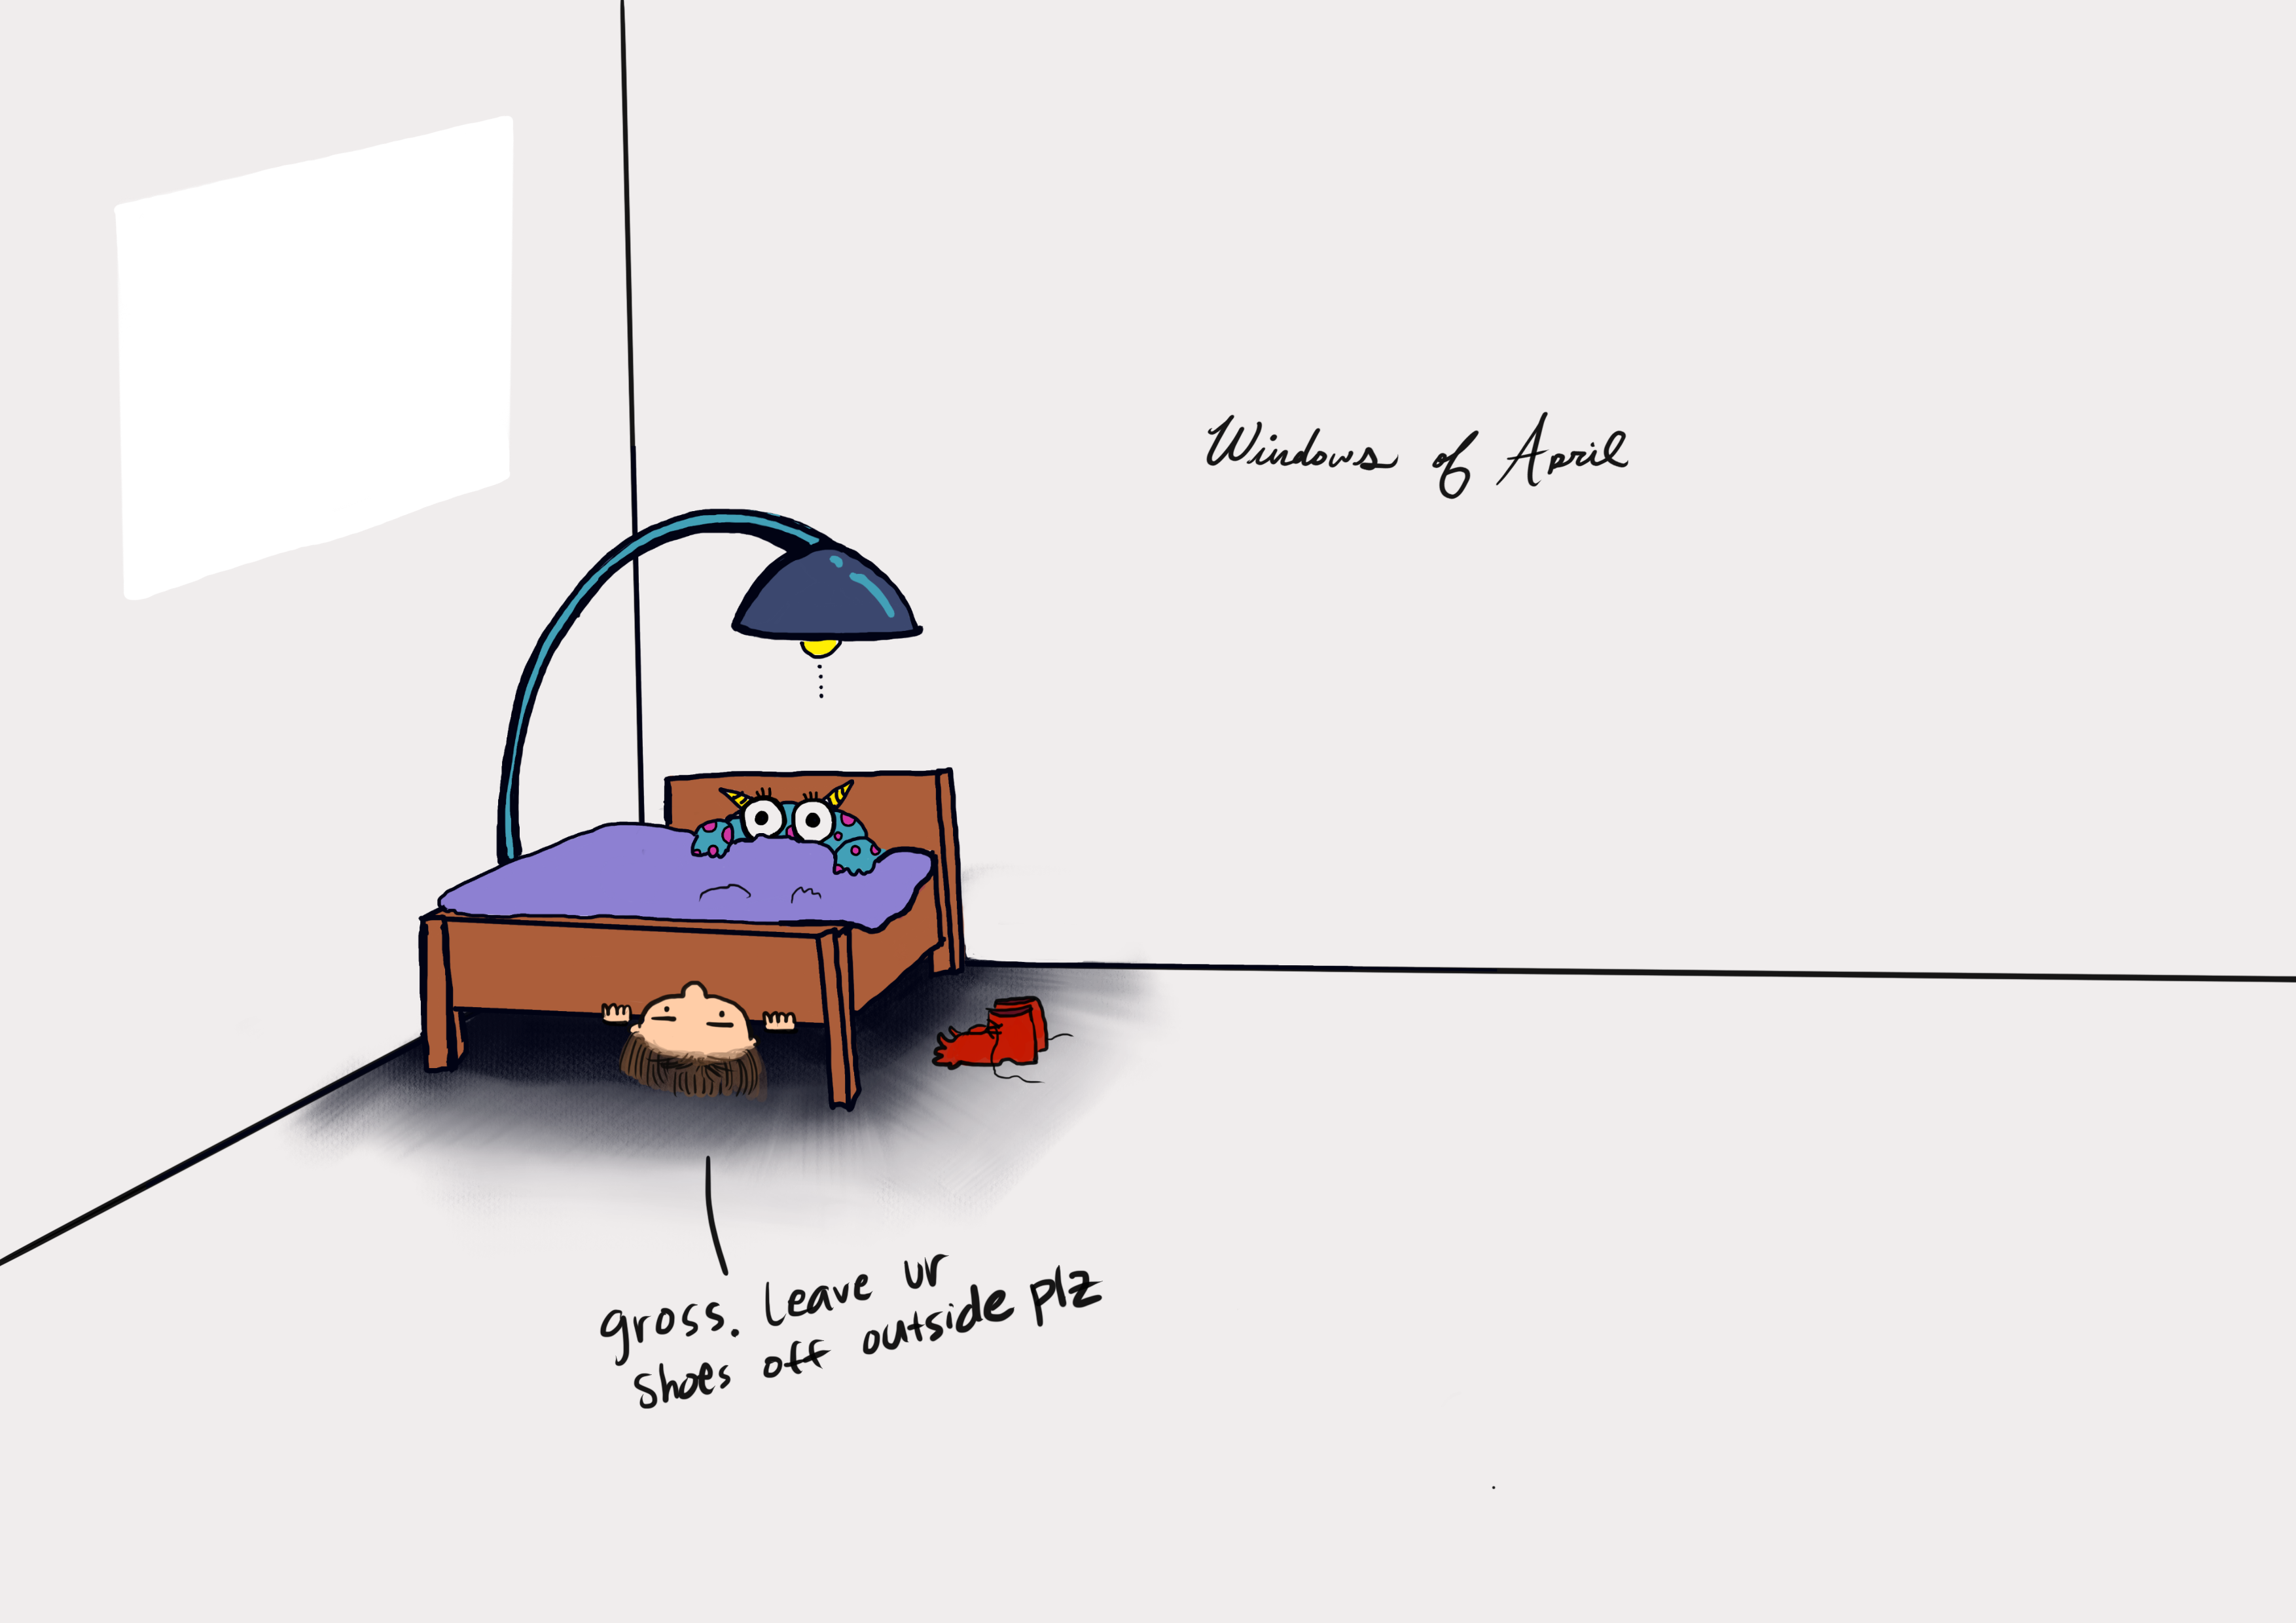 Windows of April
gross. Leave ur
shoes off outside plz